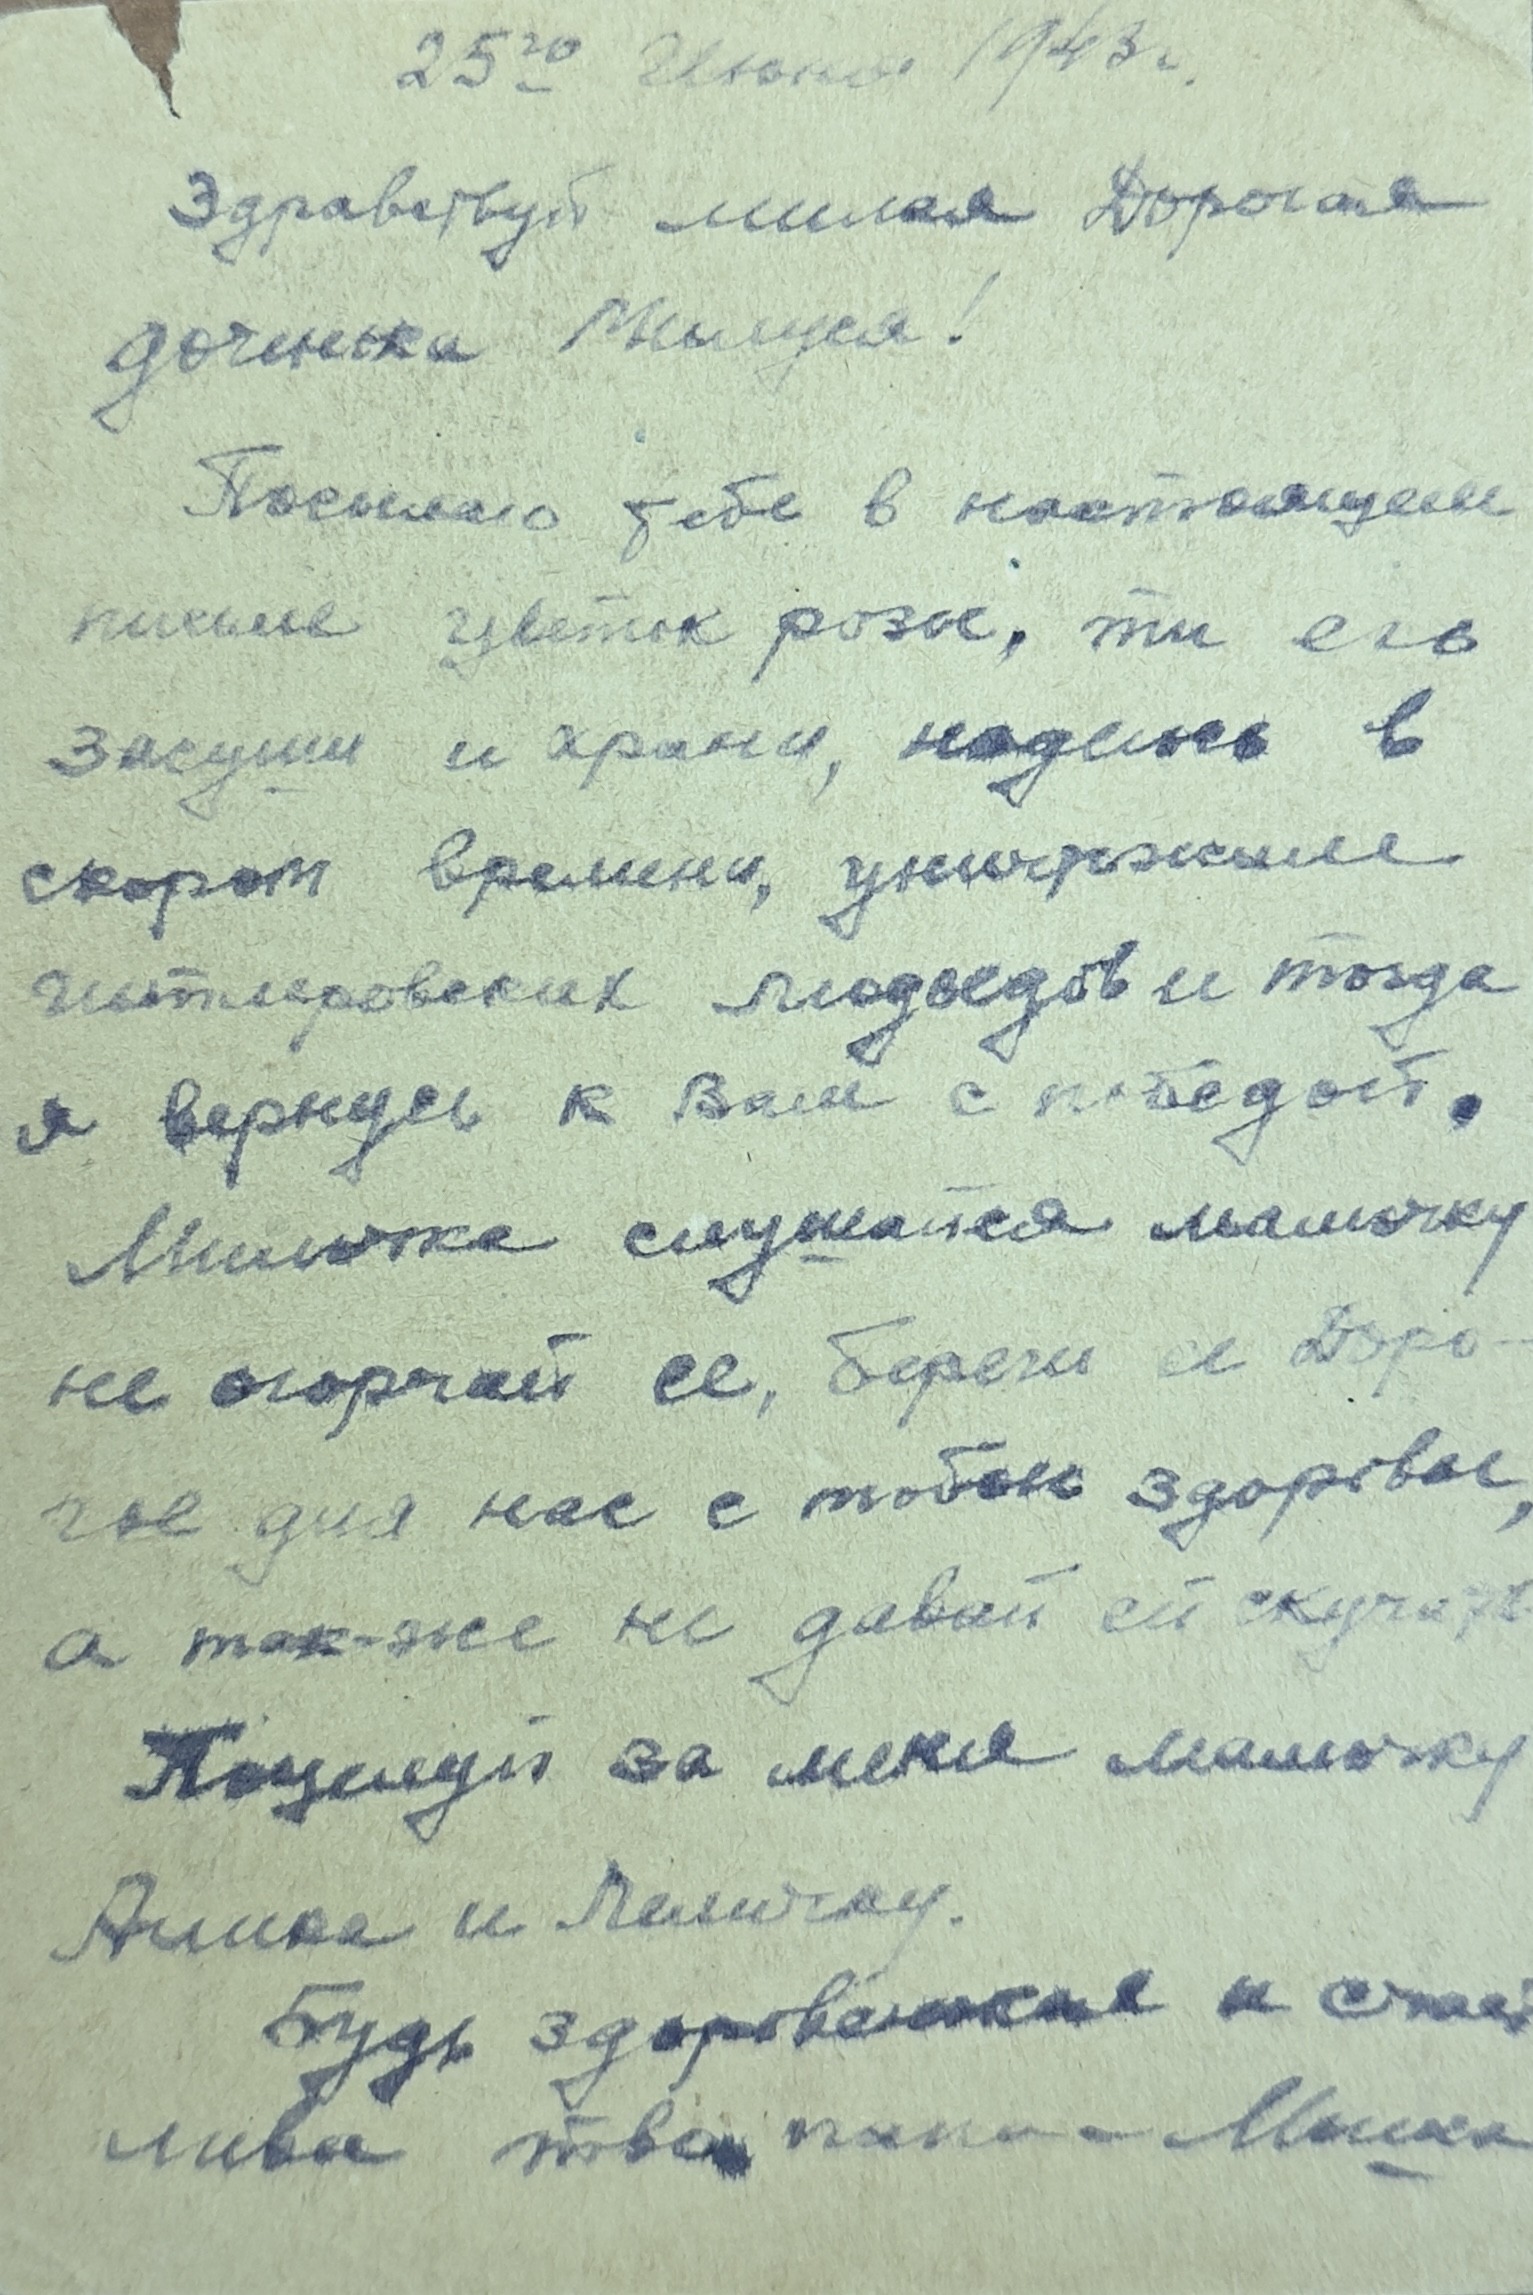 25го Июня 1943 г.
Здравствуй милая Дорогая
доченька Милуся!
Посылаю тебе в настоящем
письме цветок розы, ти его
засуши и храни, надеюсь в
скором времени, уничтжыме
гитлеровских людоедов и тогда
я вернусь к Вам с победой.
Милочка слушайся мамочку
не огорчай ее, береги ее Доро-
гое для нас с тобой здоровье,
а так-же не давай ей скучать
Поцелуй за меня мамочку
Алика и Лиличку.
Будь здоровенькая и счаст
лива твой папа - Миша